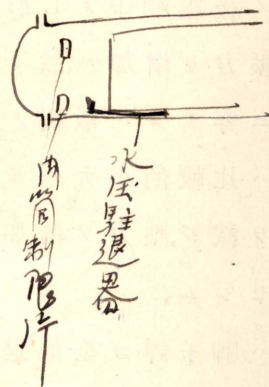 水圧駐退器
内筒制限片